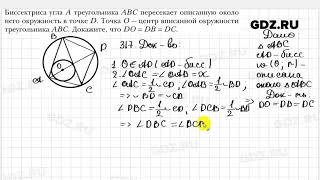 Биссектриса угла A треугольника ABC пересекает описанную около
него окружность в точке D. Точка O – центр вписанной окружности
треугольника ABC. Докажите, что DO = DB = DC.
GDZ.RU
317. Док-во:
1. O ∈ AD (AD-бисс)
2. ∠OAB = ∠OAC = α
∠OAB = 1/2 ∪BD
∠OAC = 1/2 ∪CD
=> ∪BD = ∪CD
∠DBC = 1/2 ∪CD, ∠DCB = 1/2 ∪BD
=> ∠DBC = ∠DCB,
Дано
△ABC
AD-бисс
описана
около △
Док-ть:
DO = DB = DC
A
B
C
D
O
GDZ.RU